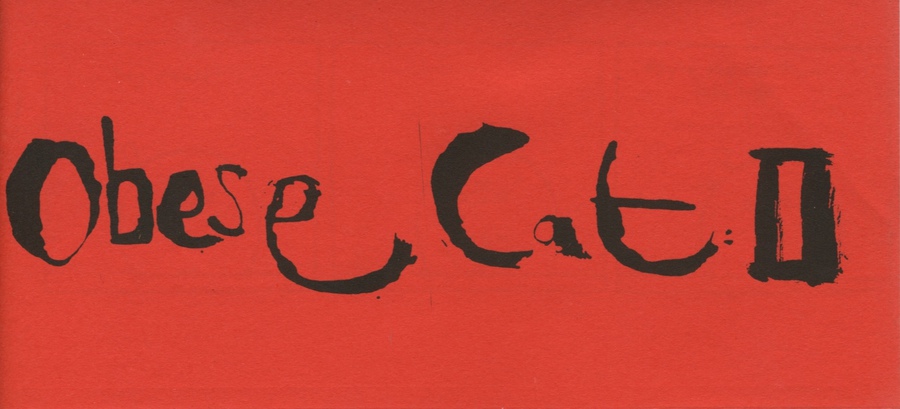 Obese Cat: II